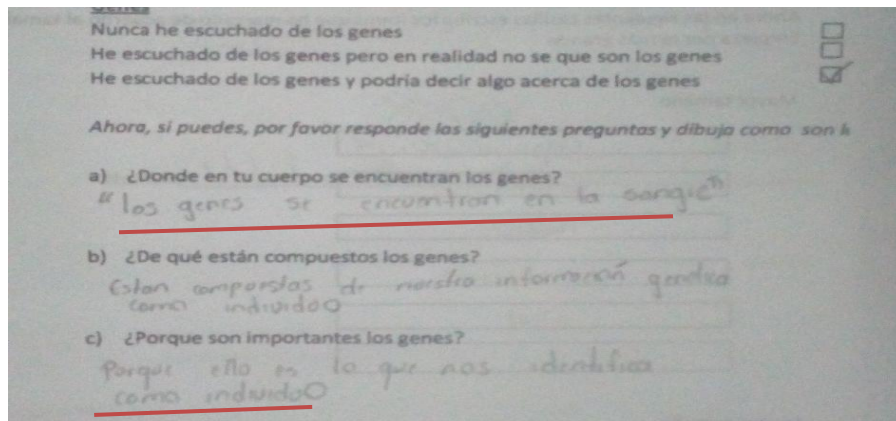 Genes
Nunca he escuchado de los genes
He escuchado de los genes pero en realidad no se que son los genes
He escuchado de los genes y podria decir algo acerca de los genes
Ahora, si puedes, por favor responde las siguientes preguntas y dibuja como son l
a) ¿Donde en tu cuerpo se encuentran los genes?
"los genes se encuentran en la sangre"
b) ¿De qué están compuestos los genes?
Estan compuestos de nuestra información genetica
como individuo
c) ¿Porque son importantes los genes?
Porque ello es lo que nos identifica
como individuo